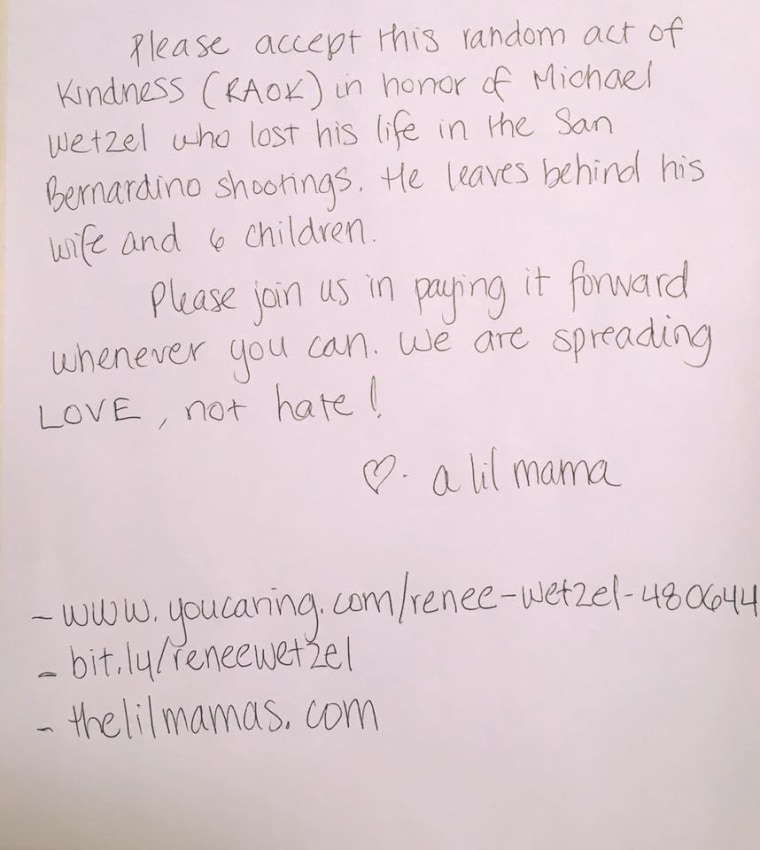 Please accept this random act of
Kindness (RAOK) in honor of Michael
Wetzel who lost his life in the San
Bernardino shootings. He leaves behind his
wife and 6 children.
Please join us in paying it forward
whenever you can. We are spreading
LOVE, not hate!
♡. a lil mama
- www.youcaring.com/renee-wetzel-480644
- bit.ly/reneewetzel
- thelilmamas.com